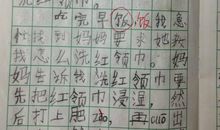 吃完早饭饭我急
忙找到妈妈要求她教
我怎么洗红领巾。妈
妈告诉我洗红领巾要
先把红领巾浸湿，然
后打上肥zào，再cuō出